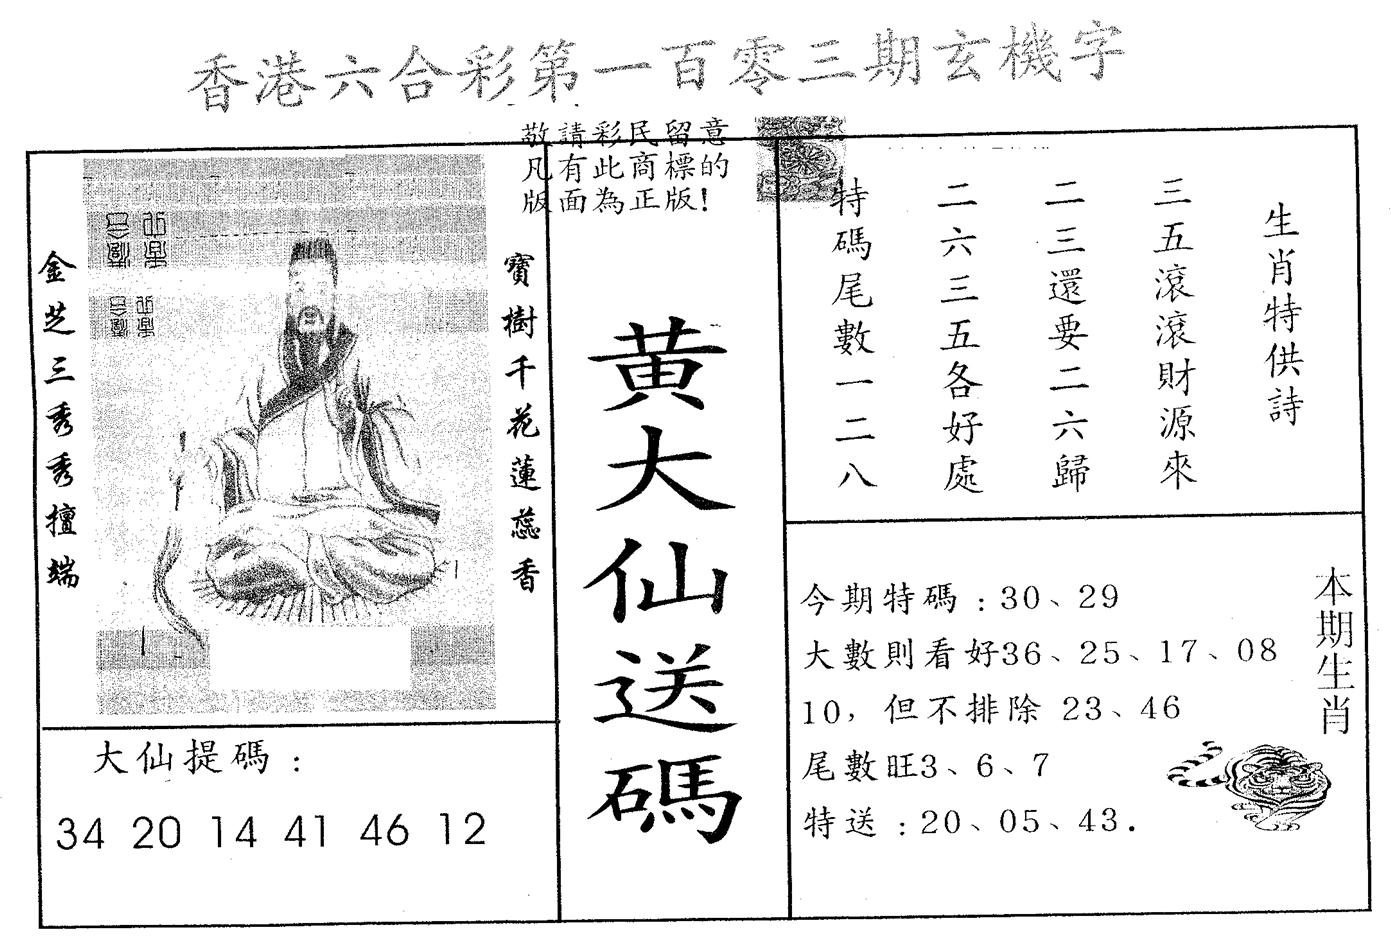 香港六合彩第一百零三期玄機字
敬請彩民留意
凡有此商標的
版面為正版!
寶樹千花蓮蕊香
金芝三秀秀擅端
大仙提碼:
34 20 14 41 46 12
黄大仙送碼
生肖特供詩
三五滾滾財源來
二三還要二六歸
二六三五各好處
特碼尾數一二八
本期生肖
今期特碼:30、29
大數則看好36、25、17、08
10,但不排除 23、46
尾數旺3、6、7
特送:20、05、43.